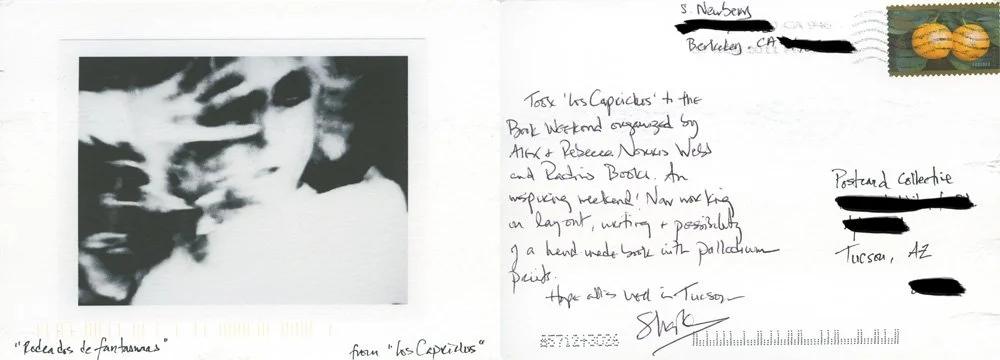 "Rodeados de fantasmas"
from "Los Caprichos"
S. Newberry
Berkeley, CA
Took 'Los Caprichos' to the
Book Weekend organized by
Alex & Rebecca Norris Webb
and Radius Books. An
inspiring weekend! Now working
on layout, writing + possibility
of a hand made book with palladium
prints.
Hope all is well in Tucson
Postcard Collective
Tucson, AZ
85712+3026